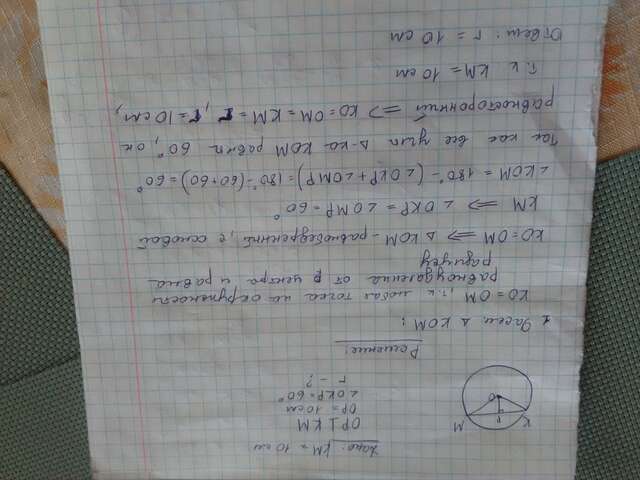 Дано: KM = 10 см
OP ⊥ KM
OP = 10 см
∠OKP = 60°
r - ?
M
K
P
O
Решение:
1. Рассм. Δ KOM:
KO = OM, т.к любая точка на окружности
равноудалена от центра и равна
радиусу
KO = OM ⇒ Δ KOM - равнобедренный, с основой
KM ⇒ ∠OKP = ∠OMP = 60°
∠KOM = 180° - (∠OKP + ∠OMP) = 180° - (60 + 60) = 60°
Так как все углы Δ-ка KOM равны 60°, он
равносторонний ⇒ KO = OM = KM = r, r = 10 см,
т.к KM = 10 см
Ответ: r = 10 см